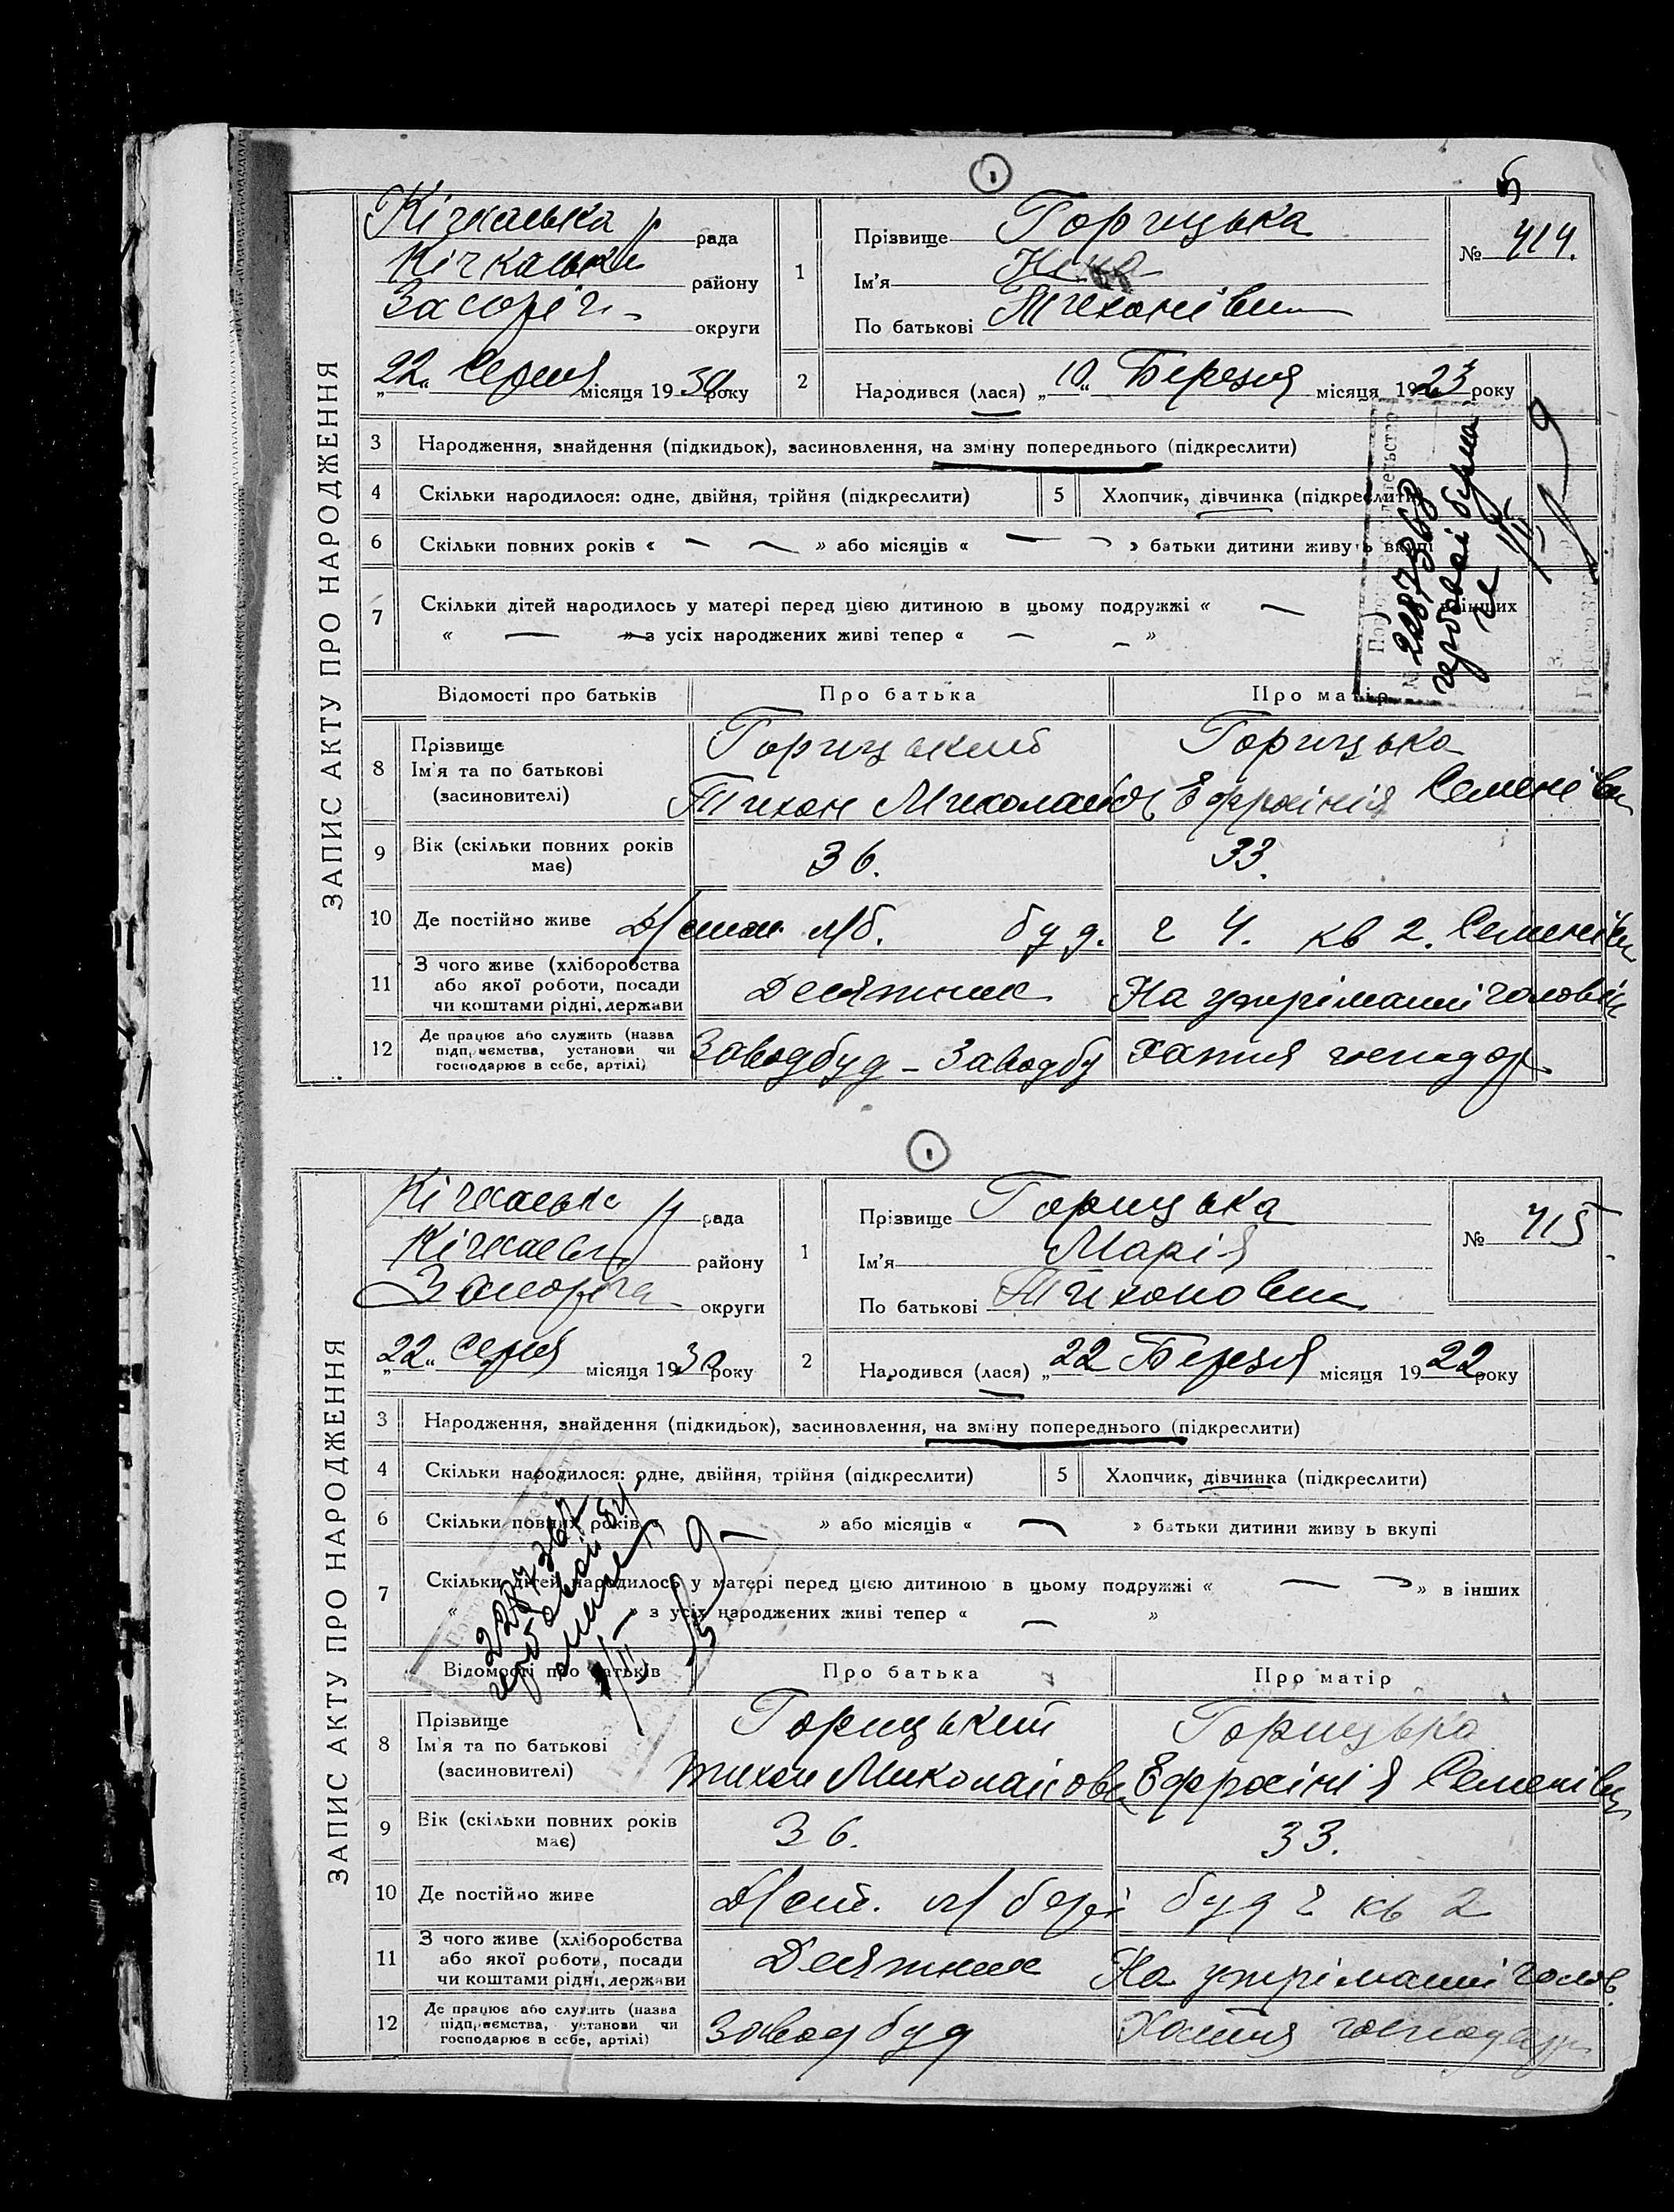 1
5
ЗАПИС АКТУ ПРО НАРОДЖЕННЯ
Кічкаська р рада
Кічкаськ району
Запоріз округи
„22“ Серпня місяця 1930 року
1 Прізвище Горицька
Ім'я
По батькові Тихонівна
№ 414.
2 Народився (лася) „10“ Березня місяця 1923 року
3 Народження, знайдення (підкидьок), засиновлення, на зміну попереднього (підкреслити)
4 Скільки народилося: одне, двійня, трійня (підкреслити)
5 Хлопчик, дівчинка (підкреслити)
6 Скільки повних років « — — » або місяців « — » батьки дитини живуть вкупі
7 Скільки дітей народилось у матері перед цією дитиною в цьому подружжі « — в інших
« — » з усіх народжених живі тепер « — »
Відомості про батьків Про батька Про матір
8 Прізвище
Ім'я та по батькові
(засиновителі)
Горицький
Тихон Миколайов
Горицька
Ефросінія Семенівн
9 Вік (скільки повних років
має)
36.
33.
10 Де постійно живе
буд. 4. кв 2.
11 З чого живе (хліборобства
або якої роботи, посади
чи коштами рідні, держави
Десятник
На утріманні чоловік
12 Де працює або служить (назва
підприємства, установи чи
господарює в себе, артілі)
Заводбуд - Заводбу
Хатня господар
1
ЗАПИС АКТУ ПРО НАРОДЖЕННЯ
Кічкаська р рада
Кічкаськ району
Запоріз округи
„22“ Серпня місяця 1930 року
1 Прізвище Горицька
Ім'я Марія
По батькові Тихоновна
№ 415
2 Народився (лася) „22 Березня місяця 1922 року
3 Народження, знайдення (підкидьок), засиновлення, на зміну попереднього (підкреслити)
4 Скільки народилося: одне, двійня, трійня (підкреслити)
5 Хлопчик, дівчинка (підкреслити)
6 Скільки повних років « » або місяців « — » батьки дитини живу ь вкупі
7 Скільки дітей народилось у матері перед цією дитиною в цьому подружжі « — » в інших
« » з усіх народжених живі тепер « — »
Відомості про батьків Про батька Про матір
8 Прізвище
Ім'я та по батькові
(засиновителі)
Горицький
Тихон Миколайов
Горицька
Ефросінія Семенівн
9 Вік (скільки повних років
має)
36.
33.
10 Де постійно живе
буд 2 кв 2
11 З чого живе (хліборобства
або якої роботи, посади
чи коштами рідні, держави
Десятник
На утріманні чолов.
12 Де працює або служить (назва
підприємства, установи чи
господарює в себе, артілі)
Заводбуд
Хатня господар